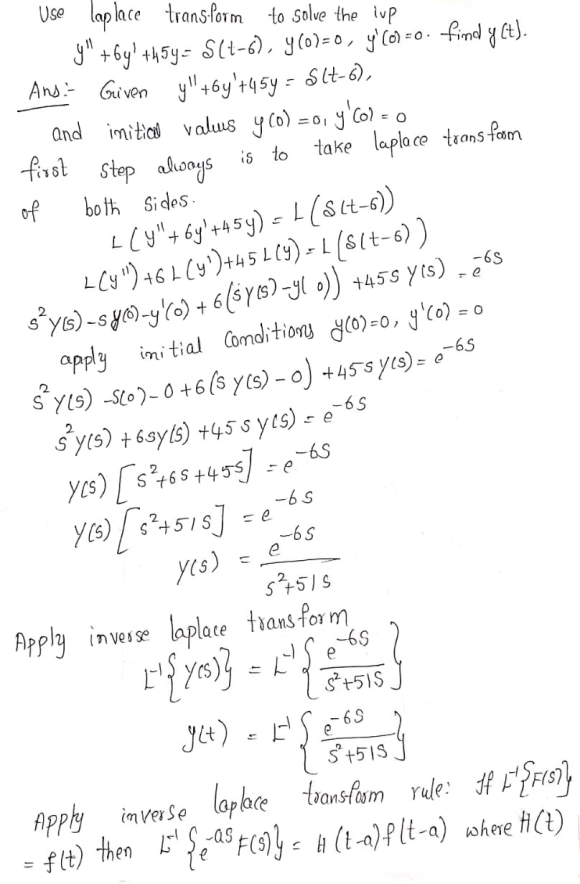 Use laplace transform to solve the ivp
y" + 6y' + 45y = S(t-6), y(0)=0, y'(0)=0. find y(t).
Ans:- Given y" + 6y' + 45y = S(t-6),
and initial values y(0) = 0, y'(0) = 0
first step always is to take laplace transform
of both sides.
L(y" + 6y' + 45y) = L(S(t-6))
L(y") + 6L(y') + 45L(y) = L(S(t-6))
s²y(s) - sy(0) - y'(0) + 6(sy(s) - y(0)) + 45s y(s) = e^-6s
apply initial Conditions y(0)=0, y'(0) = 0
s²y(s) - s(0) - 0 + 6(s y(s) - 0) + 45s y(s) = e^-6s
s²y(s) + 6sy(s) + 45s y(s) = e^-6s
y(s) [s²+6s+45s] = e^-6s
y(s) [s²+51s] = e^-6s
y(s) = e^-6s / s²+51s
Apply inverse laplace transform
L⁻¹{y(s)} = L⁻¹{e^-6s / s²+51s}
y(t) = L⁻¹{e^-6s / s²+51s}
Apply inverse laplace transform rule: If L⁻¹{F(s)}
= f(t) then L⁻¹{e^-as F(s)} = H(t-a)f(t-a) where H(t)